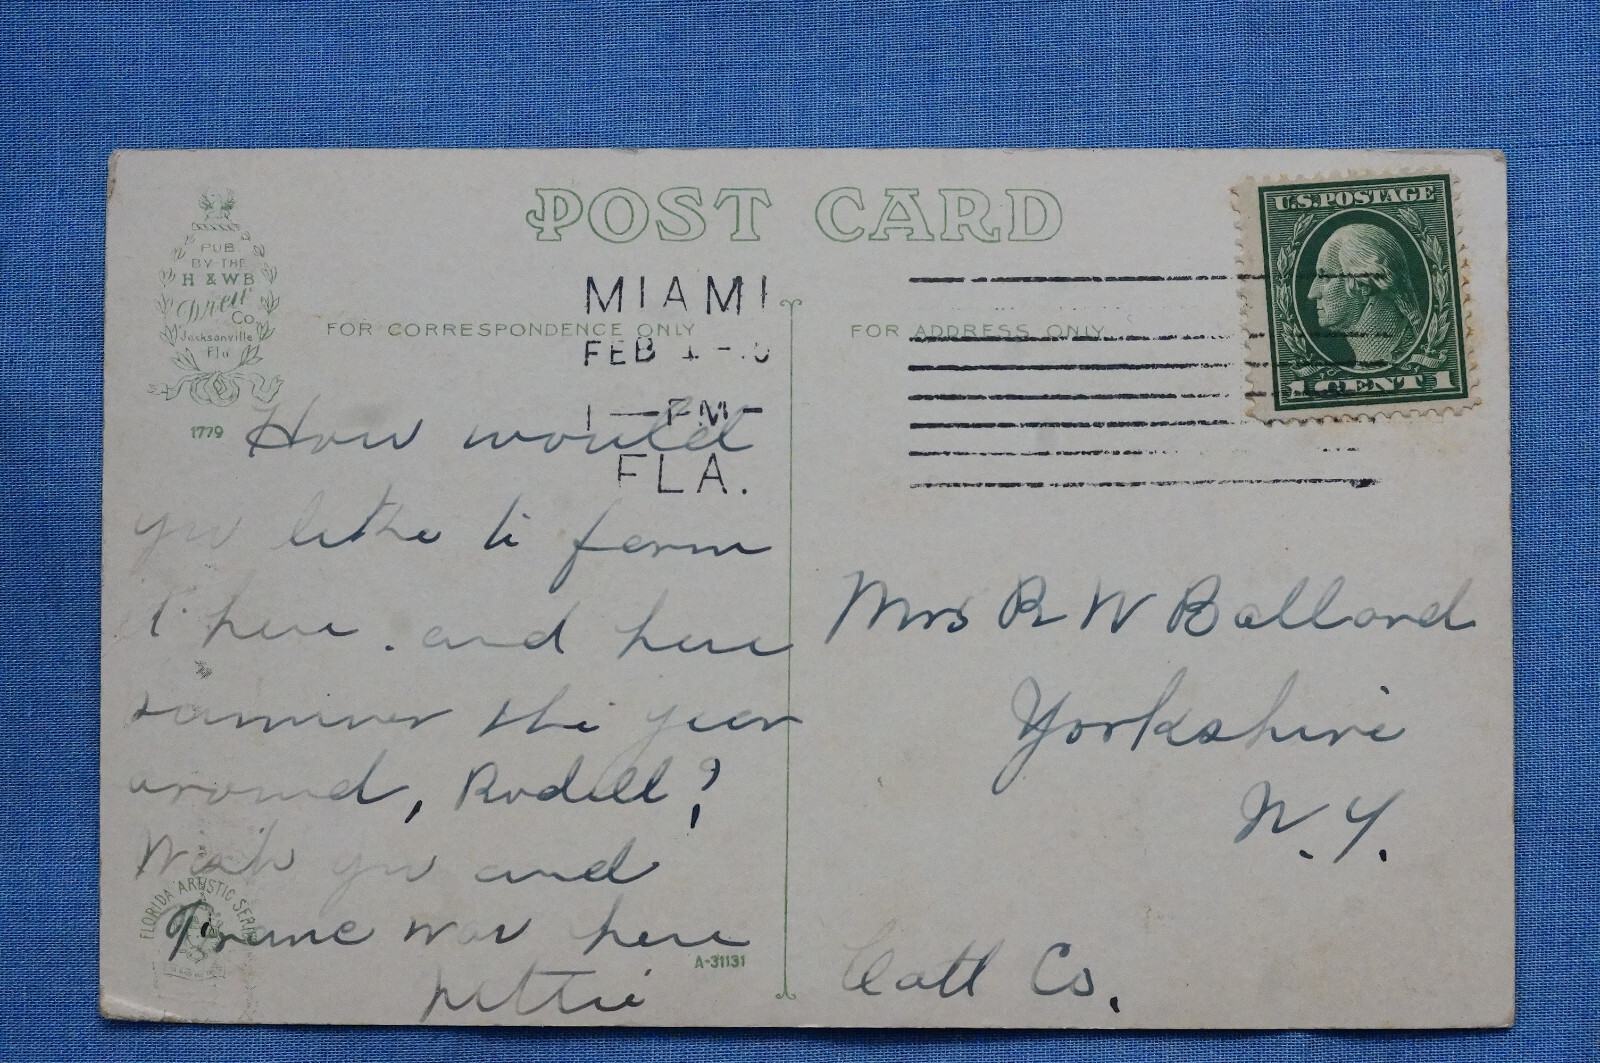 POST CARD
PUB
BY THE
H & W B
Drew
Co
Jacksonville
Fla
1779
FOR CORRESPONDENCE ONLY
FOR ADDRESS ONLY
MIAMI
FEB
1-PM-
FLA.
U.S. POSTAGE
1 CENT 1
How would
you like to farm
it here. and have
summer the year
around, Rodell?
Wish you and
was here
Nettie
FLORIDA ARTISTIC SERIES
A-31131
Mrs R W Ballard
Yorkshire
N.Y.
Catt Co.